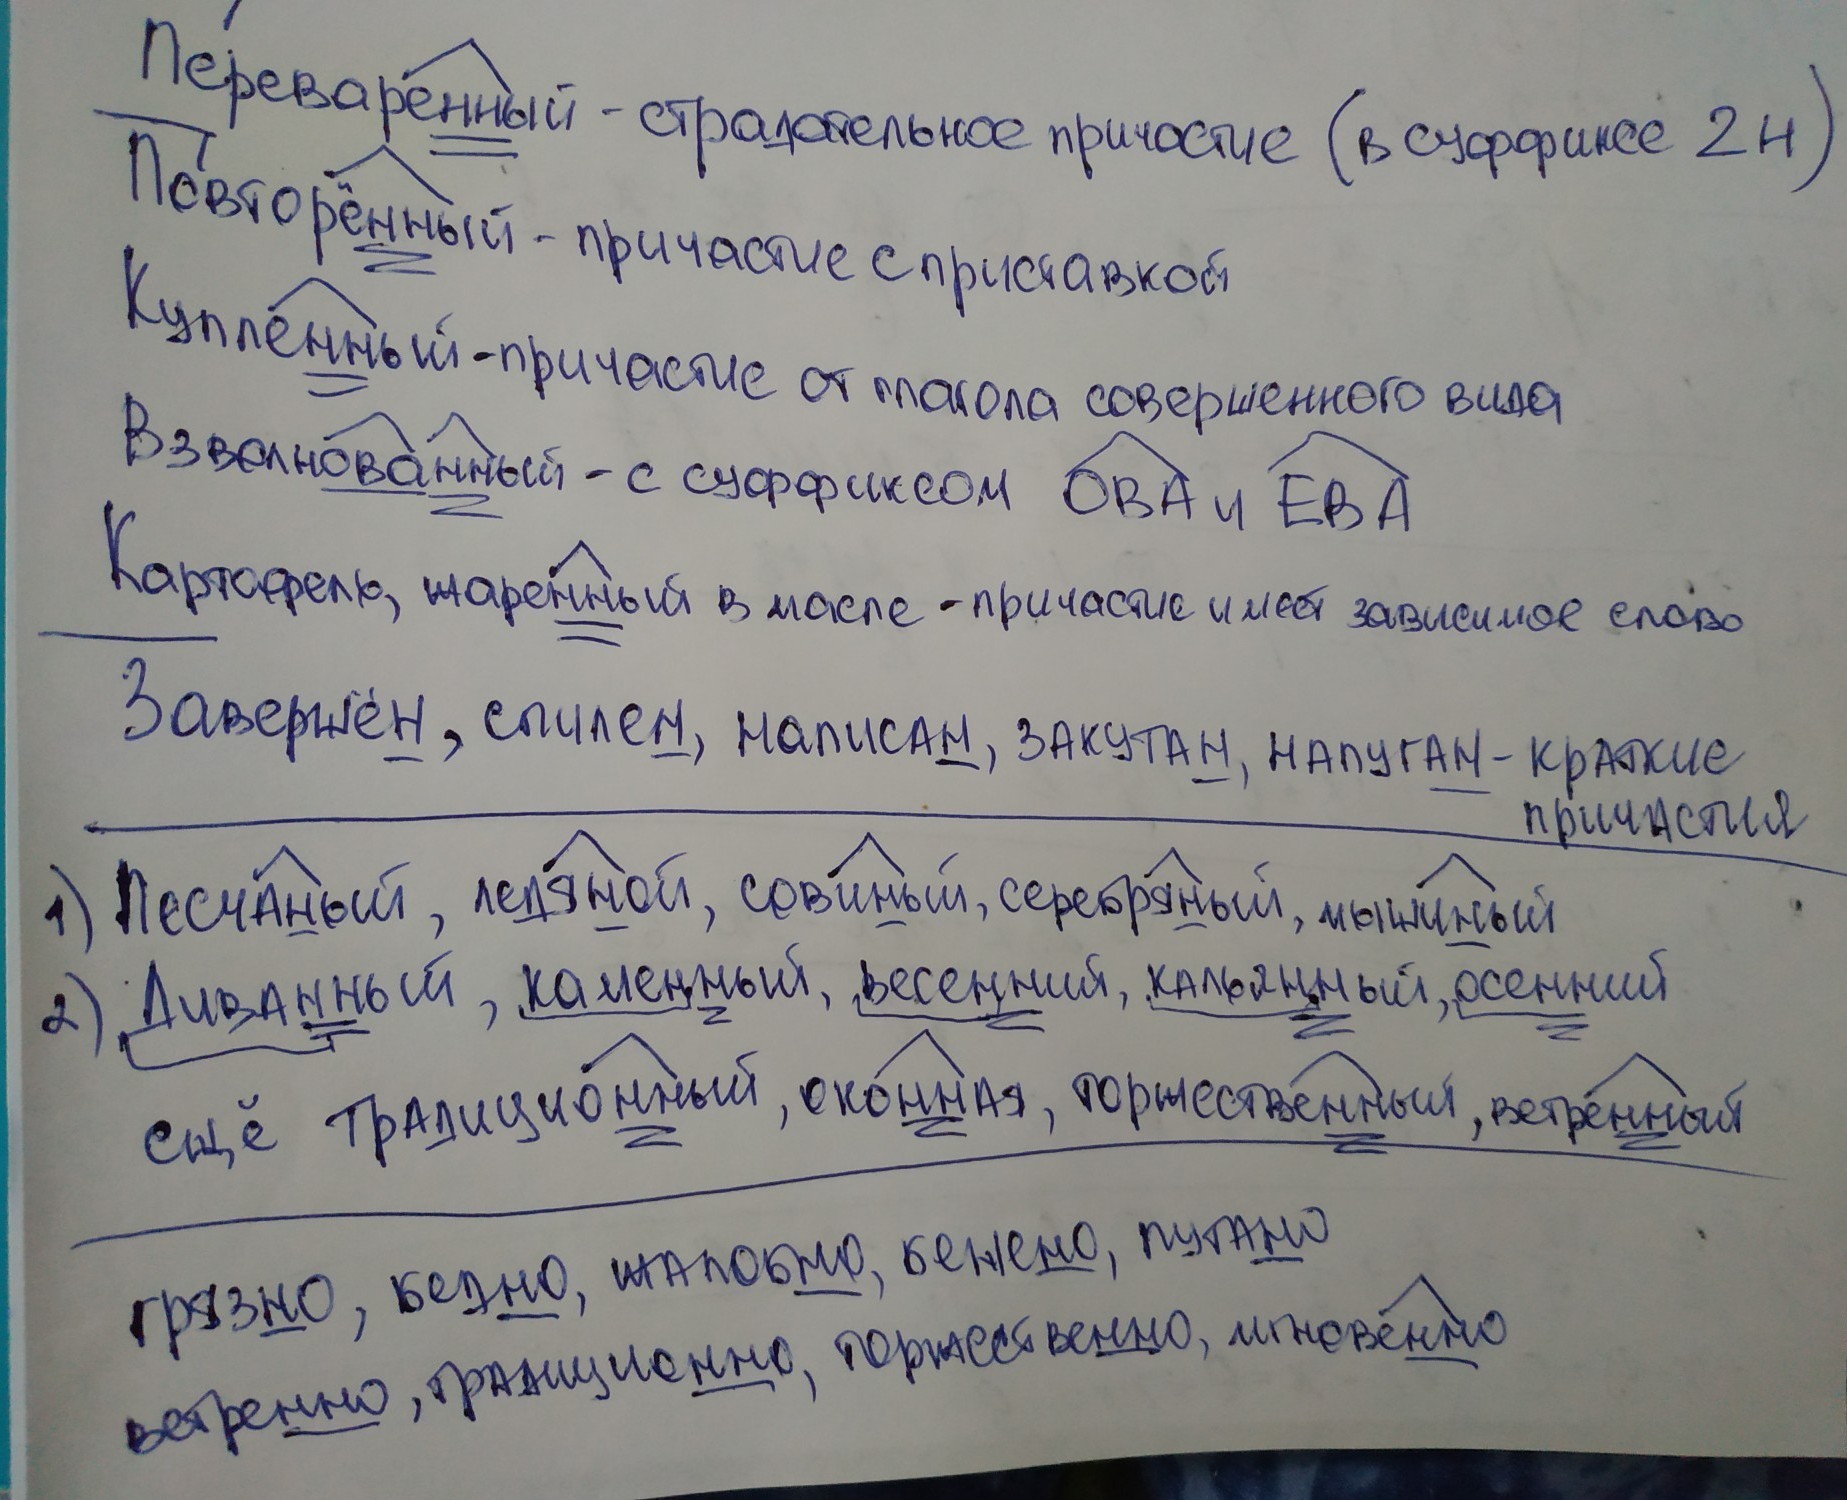 Переваренный - страдательное причастие (в суффиксе 2 н)
Повторённый - причастие с приставкой
Купленный - причастие от глагола совершенного вида
Взволнованный - с суффиксом ОВА и ЕВА
Картофель, жаренный в масле - причастие имеет зависимое слово
Завершён, спилен, написан, закутан, напуган - краткие
причастия
1) Песчаный, ледяной, совиный, серебряный, мышиный
2) Диванный, каменный, весенний, кальянный, осенний
ещё традиционный, оконная, торжественный, ветренный
грязно, бедно, жалобно, бежено, путано
ветренно, традиционно, торжественно, мгновенно